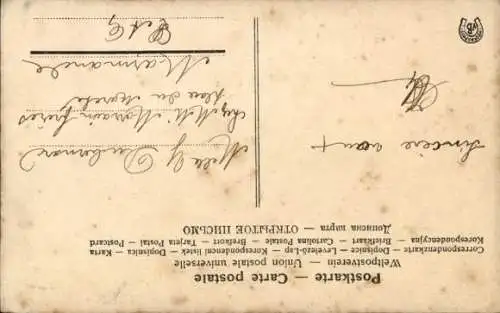 Postkarte — Carte postale
Weltpostverein — Union postale universelle
Correspondenzkarte — Dopisnice — Levelező-Lap — Korespondencni listek — Dopisnica — Karta
Korespondencyjna — Briefkart — Cartolina Postale — Brefkort — Tarjeta Postal — Postcard
Дописна карта — ОТКРЫТОЕ ПИСЬМО
Sincère
Melle Y.
chez M. M. frères
Place du
Marmande
L et G